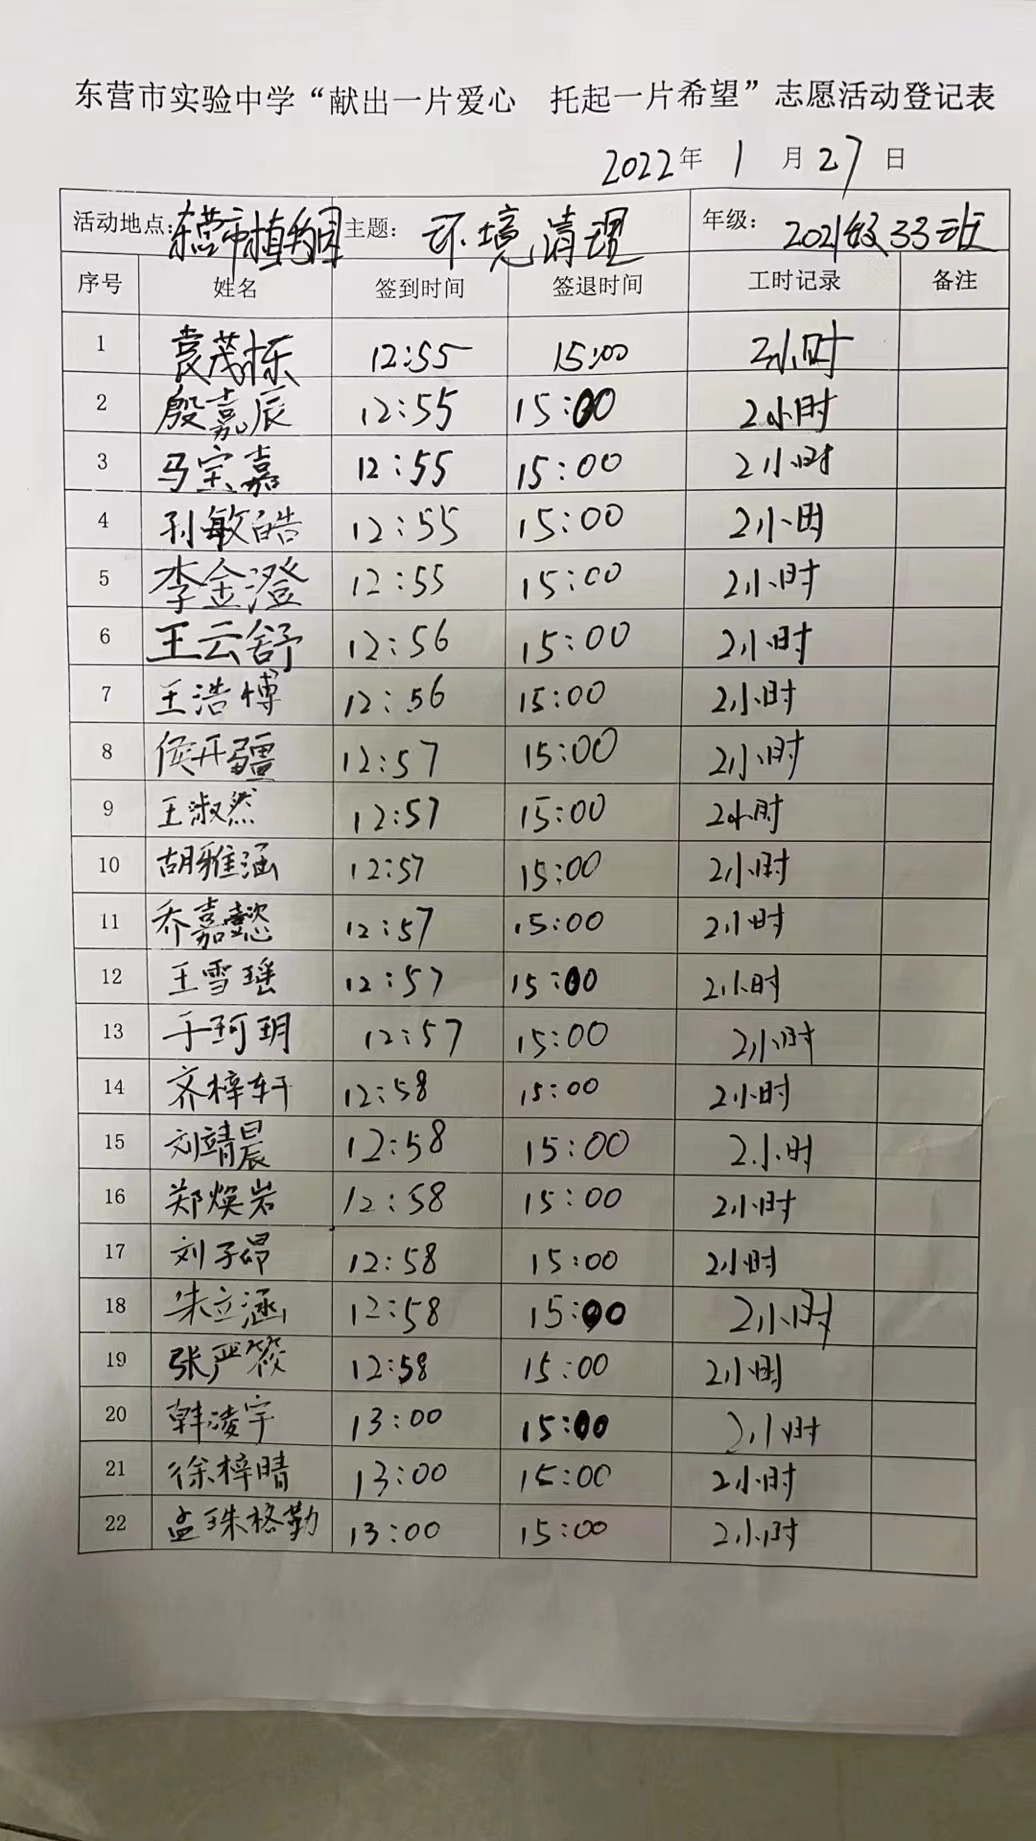 东营市实验中学“献出一片爱心 托起一片希望”志愿活动登记表
2022年 1 月 27 日
活动地点:东营市植物园 主题: 环境清理 年级: 2021级33班
序号 姓名 签到时间 签退时间 工时记录 备注
1 袁茂栋 12:55 15:00 2小时
2 殷嘉辰 12:55 15:00 2小时
3 马宝嘉 12:55 15:00 2小时
4 孙敏皓 12:55 15:00 2小时
5 李金澄 12:55 15:00 2小时
6 王云舒 12:56 15:00 2小时
7 王浩博 12:56 15:00 2小时
8 侯开疆 12:57 15:00 2小时
9 王淑然 12:57 15:00 2小时
10 胡雅涵 12:57 15:00 2小时
11 乔嘉懿 12:57 15:00 2小时
12 王雪瑶 12:57 15:00 2小时
13 于珂玥 12:57 15:00 2小时
14 齐梓轩 12:58 15:00 2小时
15 刘靖晨 12:58 15:00 2小时
16 郑焕岩 12:58 15:00 2小时
17 刘子昂 12:58 15:00 2小时
18 朱立涵 12:58 15:00 2小时
19 张严筱 12:58 15:00 2小时
20 韩凌宇 13:00 15:00 2小时
21 徐梓晴 13:00 15:00 2小时
22 孟珠格勒 13:00 15:00 2小时